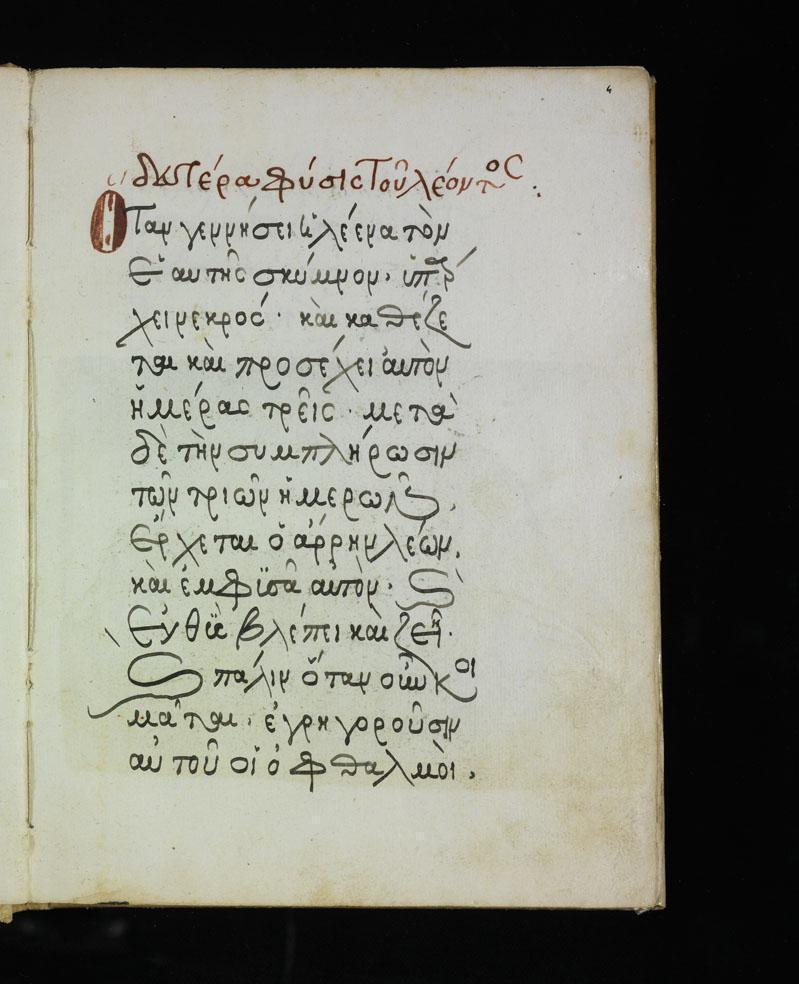 4
δευτέρα φύσις τοῦ λέοντος
Ὅταν γεννήσει ἡ λέενα τὸν
ἑαυτῆς σκύμνον· ὑπάρ
χει νεκρός· καὶ καθέζε
ται καὶ προσέχει αὐτὸν
ἡμέρας τρεῖς· μετὰ
δὲ τὴν συμπλήρωσιν
τῶν τριῶν ἡμερῶν
ἔρχεται ὁ ἄρρην λέων,
καὶ ἐμφυσᾶ αὐτόν· καὶ
εὐθὺς βλέπει καὶ ζεῖ·
καὶ πάλιν ὅταν οὖν κοι
μᾶται· ἐγρηγοροῦσιν
αὐτοῦ οἱ ὀφθαλμοὶ,